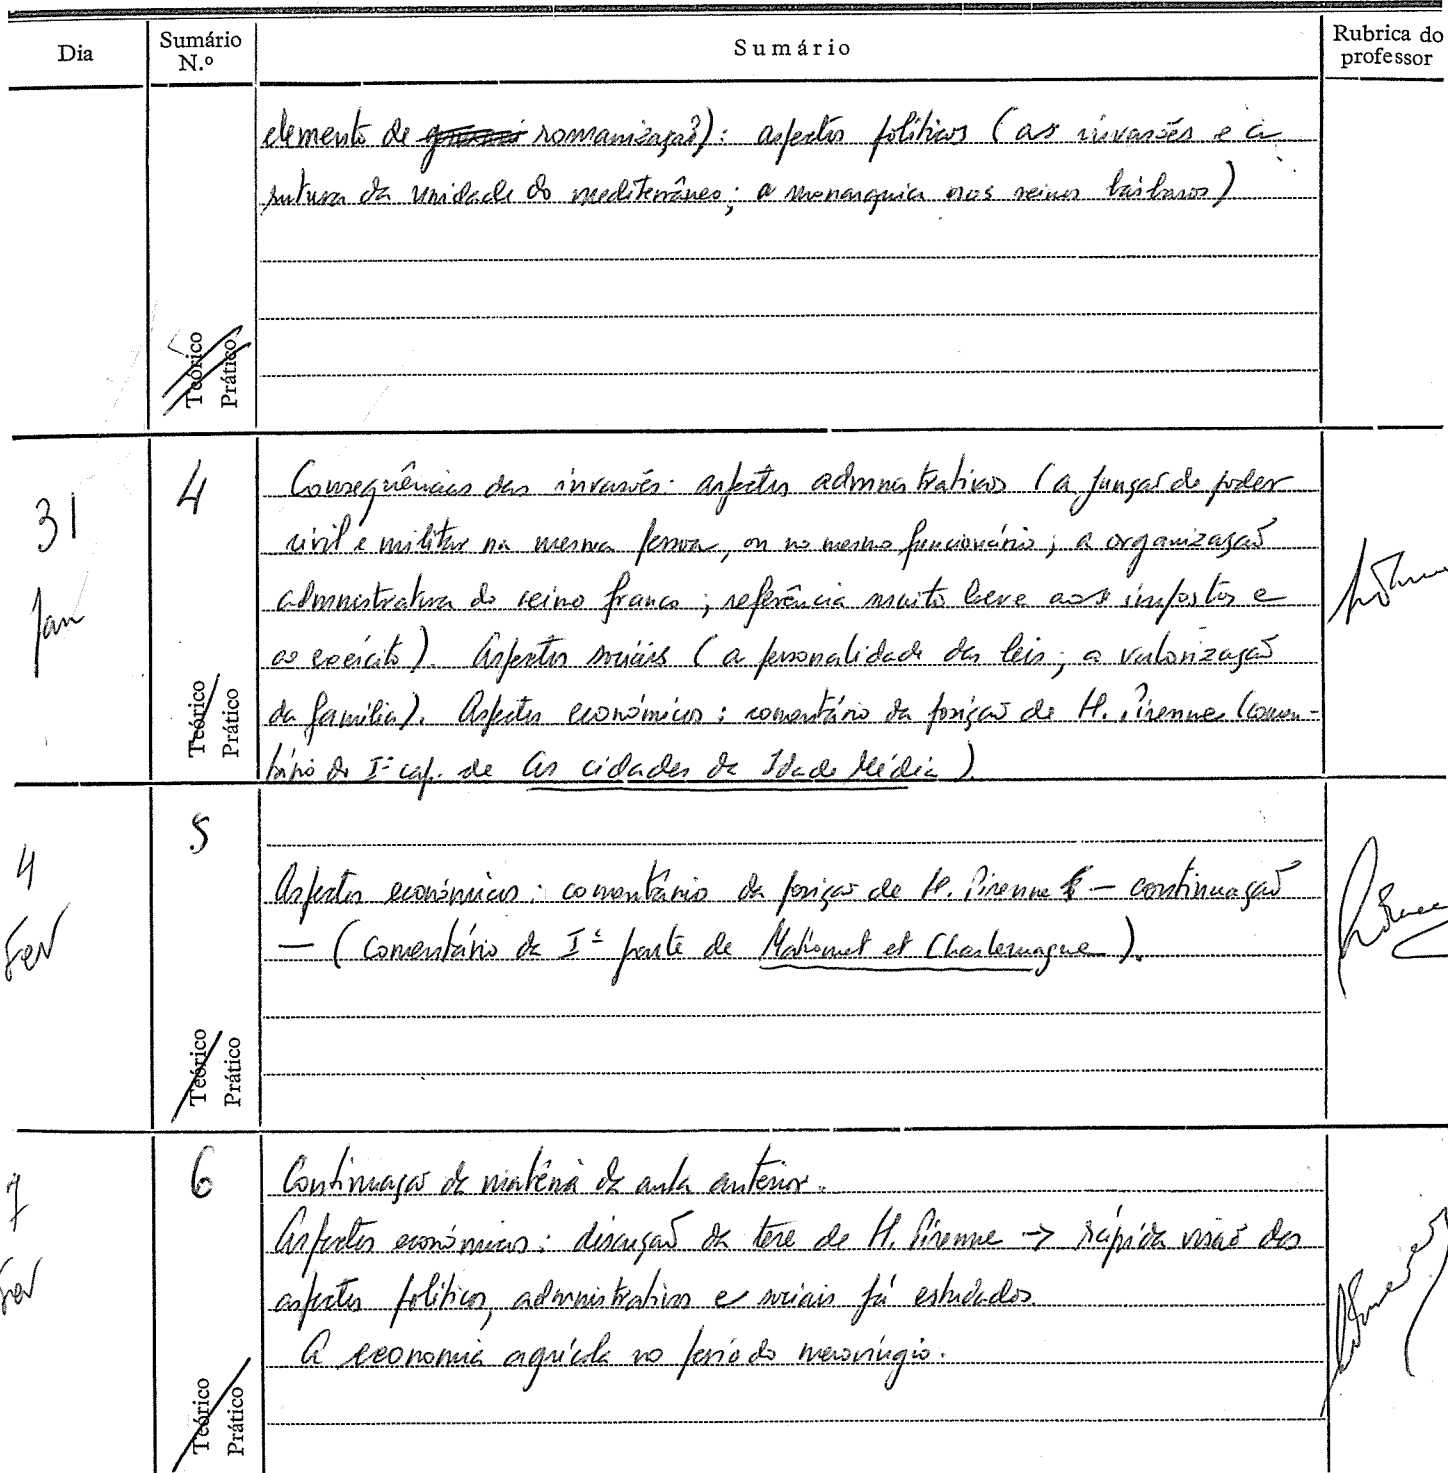 Dia
Sumário N.º
Sumário
Rubrica do professor
elemento de romanização): aspectos políticos (as invasões e a
rutura da unidade do mediterrâneo; a monarquia nos reinos bárbaros)
Teórico
Prático
31 Jan
4
Consequências das invasões: aspectos administrativos (a junção de poder
civil e militar na mesma pessoa, ou no mesmo funcionário; a organização
administrativa do reino franco; referência muito breve aos impostos e
ao exército). Aspectos sociais (a personalidade das leis; a valorização
da família). Aspectos económicos: comentário da posição de H. Pirenne (comen-
tário do Iº cap. de As cidades da Idade Média)
Teórico
Prático
4 Fev
5
Aspectos económicos: comentário da posição de H. Pirenne — continuação
— (Comentário da Iª parte de Mahomet et Charlemagne).
Teórico
Prático
7 Fev
6
Continuação da matéria da aula anterior.
Aspectos económicos: discução da tese de H. Pirenne -> rápida visão dos
aspectos políticos, administrativos e sociais já estudados.
A economia agrícola no período merovíngio.
Teórico
Prático